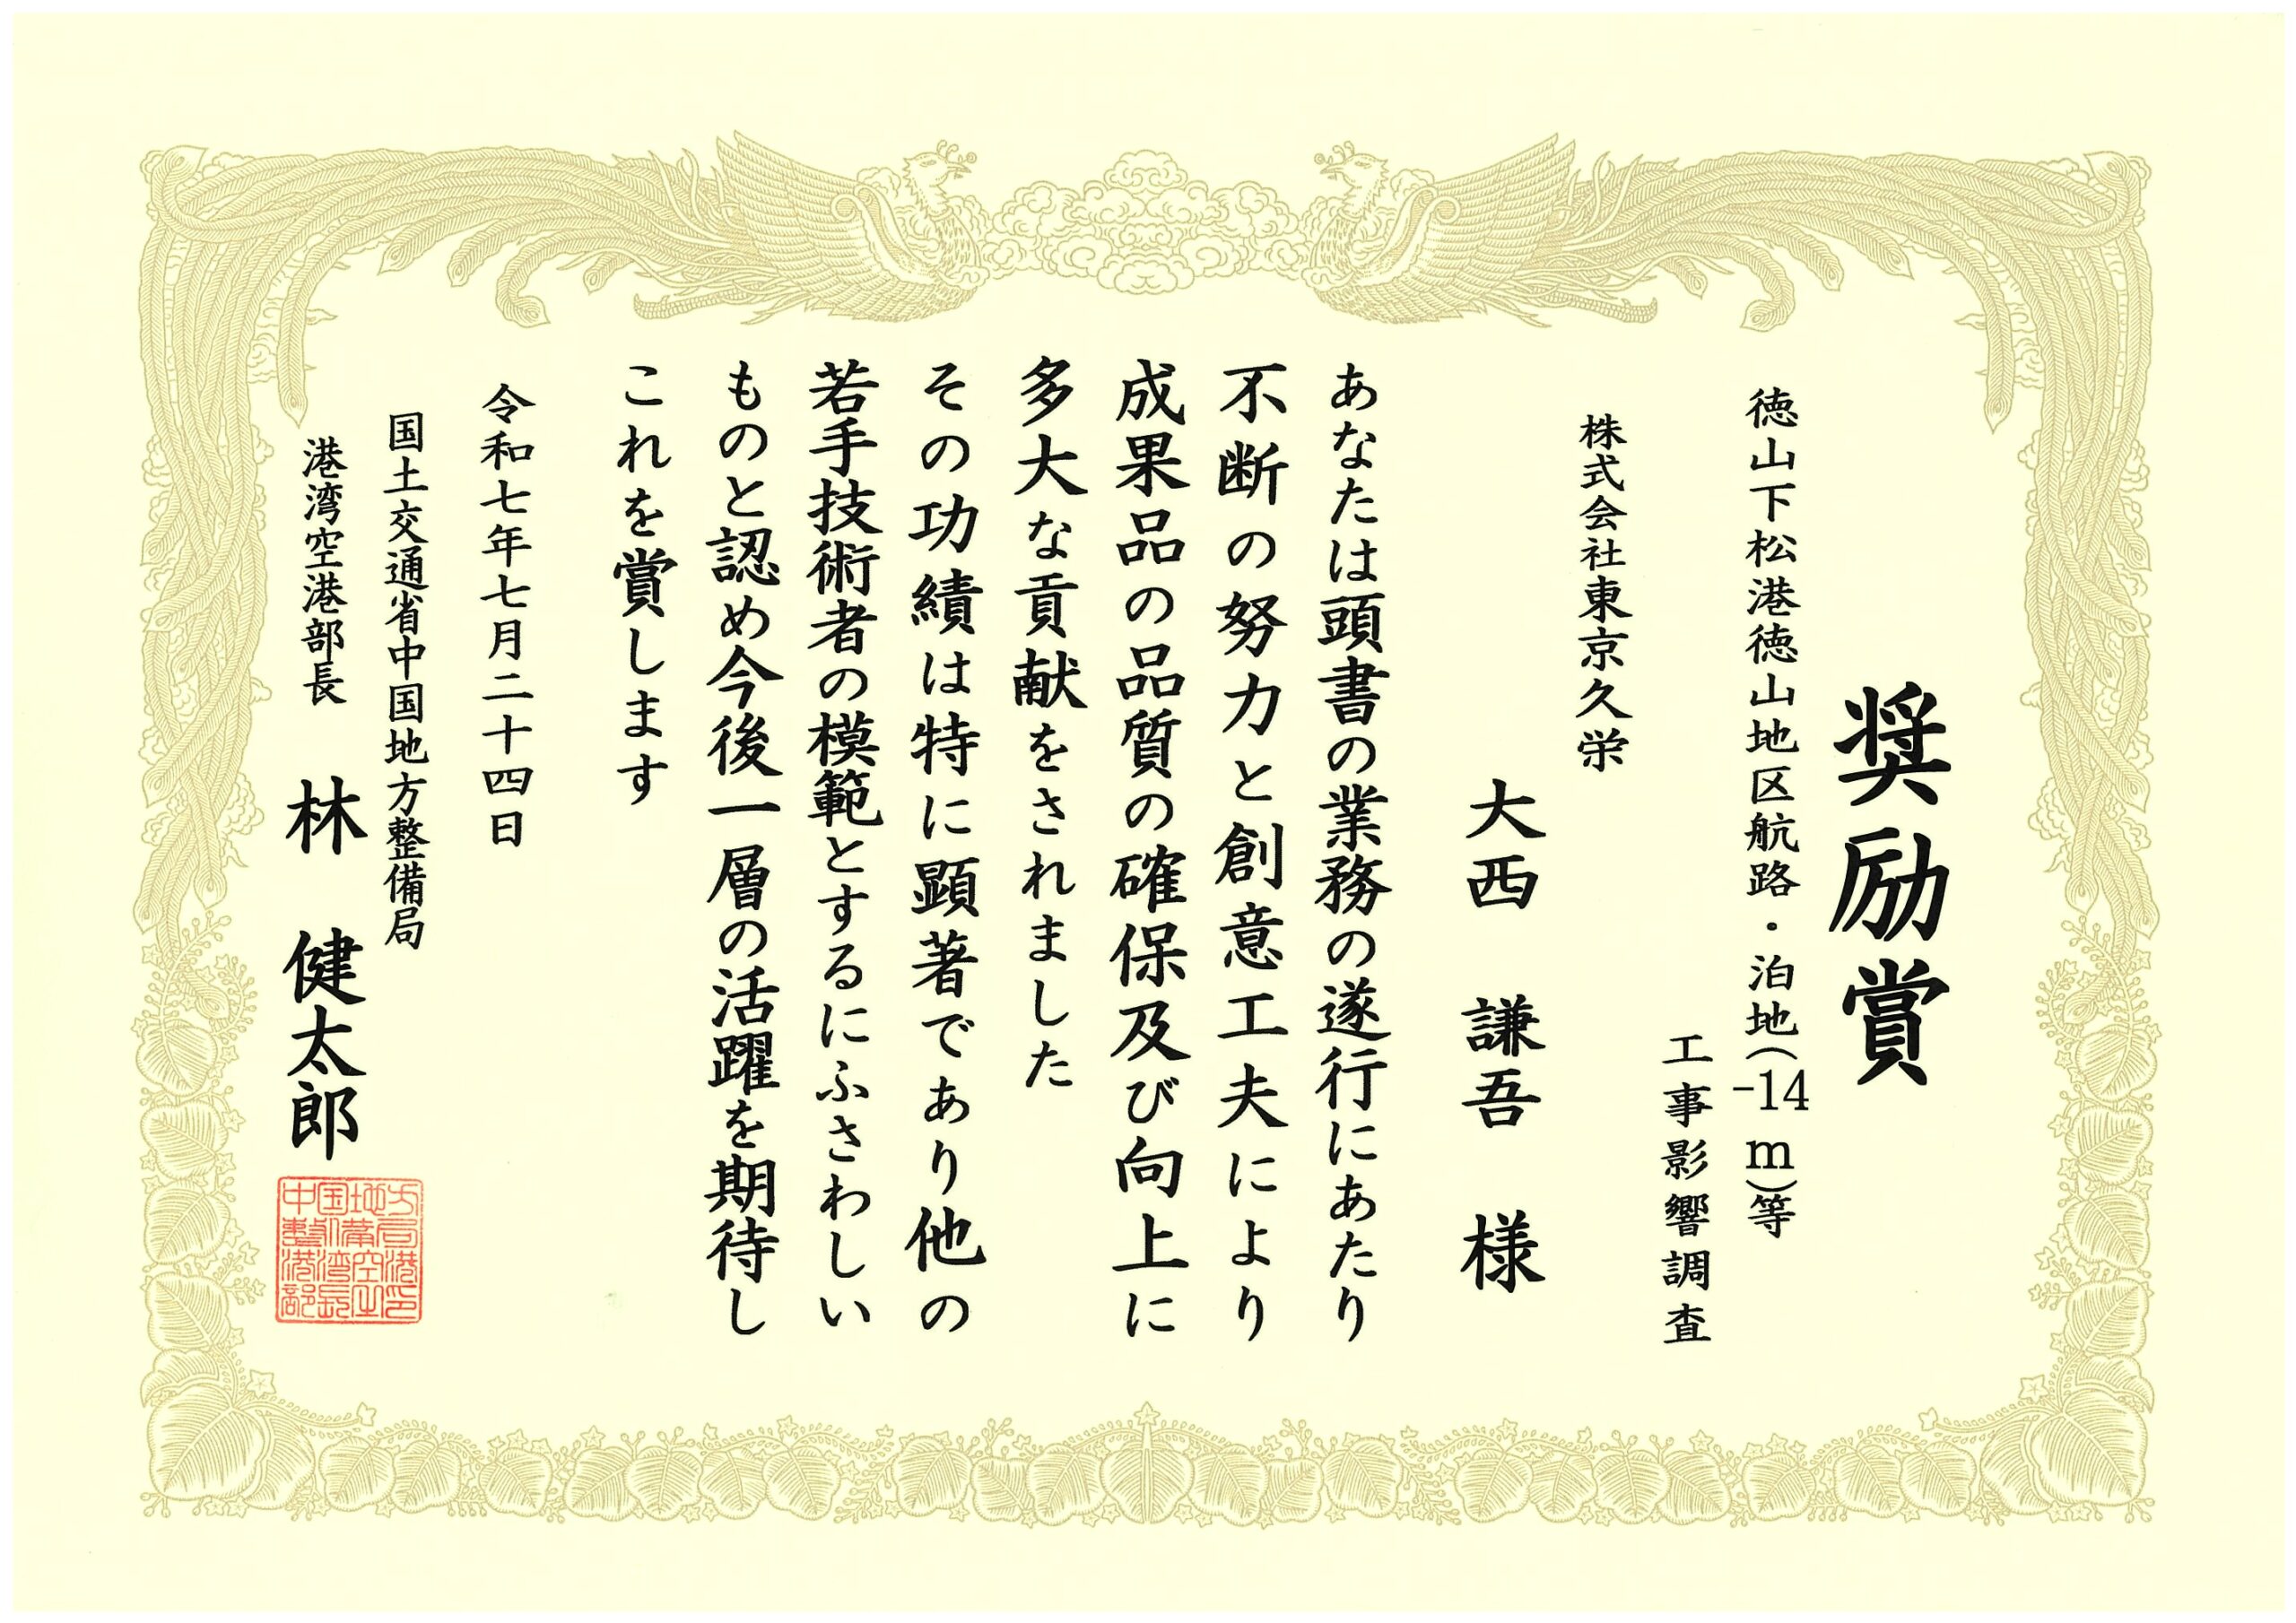 奨励賞
徳山下松港徳山地区航路・泊地(-14m)等
工事影響調査
株式会社東京久栄
大西 謙吾 様
あなたは頭書の業務の遂行にあたり
不断の努力と創意工夫により
成果品の品質の確保及び向上に
多大な貢献をされました
その功績は特に顕著であり他の
若手技術者の模範とするにふさわしい
ものと認め今後一層の活躍を期待し
これを賞します
令和七年七月二十四日
国土交通省中国地方整備局
港湾空港部長 林 健太郎